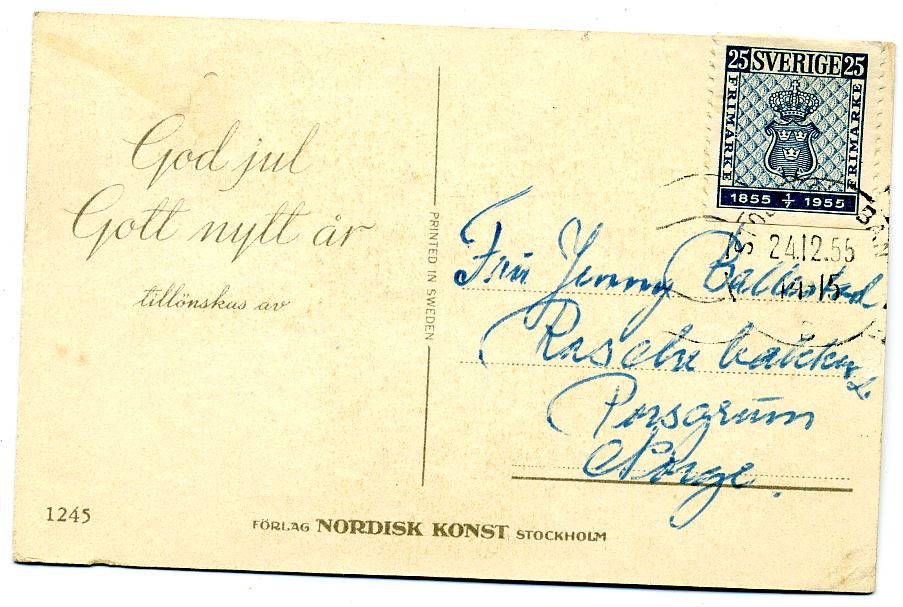 God jul
Gott nytt år
tillönskas av
PRINTED IN SWEDEN
25 SVERIGE 25
FRIMÄRKE
FRIMÄRKE
1855 1/7 1955
24.12.55
14-15
Fru Jenny
Porsgrunn
Norge.
1245
FÖRLAG NORDISK KONST STOCKHOLM